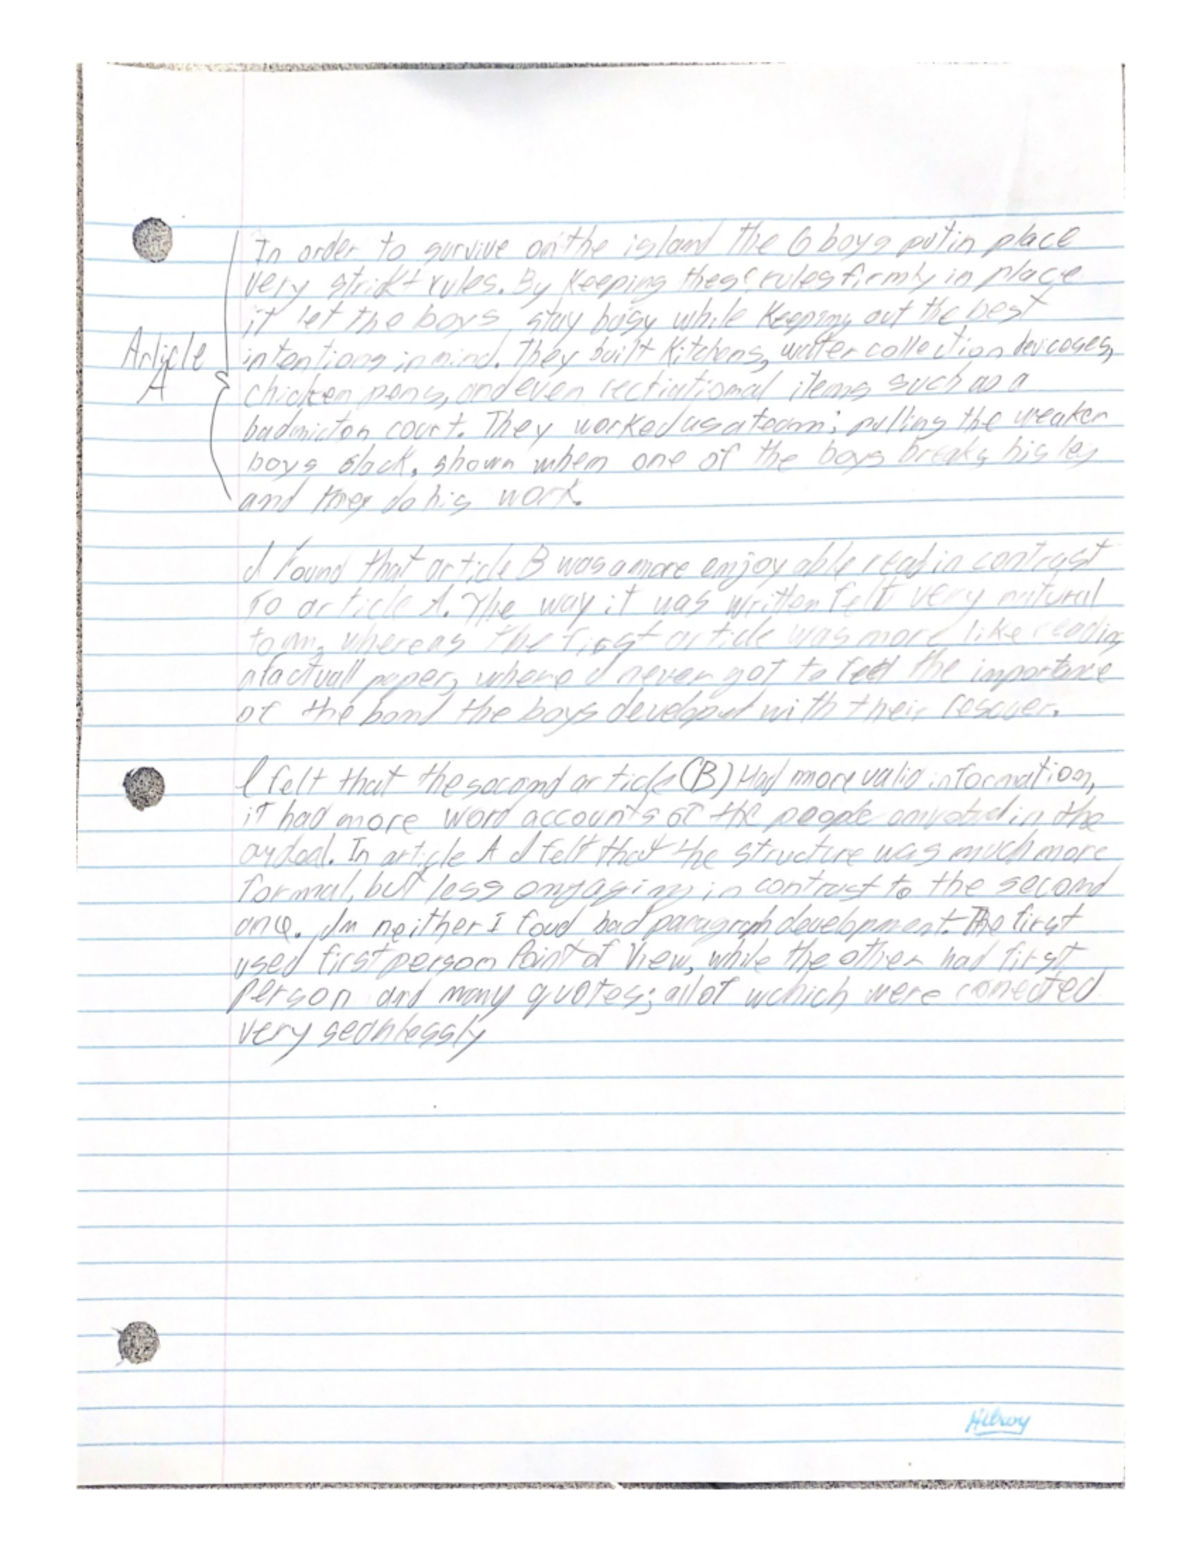 In order to survive on the island the 6 boys put in place
very strickt rules. By keeping these rules firmly in place
it let the boys stay busy while keeping out the best
Article A
intentions in mind. They built kitchens, watter collection devcoses,
chicken pens, and even rectiational items such as a
badmicton court. They worked as a team; pulling the weaker
boys slack, shown when one of the boys breaks his leg
and they do his work.
I found that article B was a more enjoyable read in contrast
to article A. The way it was written felt very natural
to me, whereas the first article was more like reading
a factuall paper, where I never got to feel the importance
of the bond the boys developed with their rescuer.
I felt that the second article (B) Had more valid information,
it had more word accounts of the people in the
oydeal. In article A I felt that the structure was much more
formal, but less engaging in contrast to the second
one. In neither I foud bad paragraph development. The first
used first person Point of View, while the other had first
person and many quotes; all of wchich were conected
very seamlessly
Hilroy